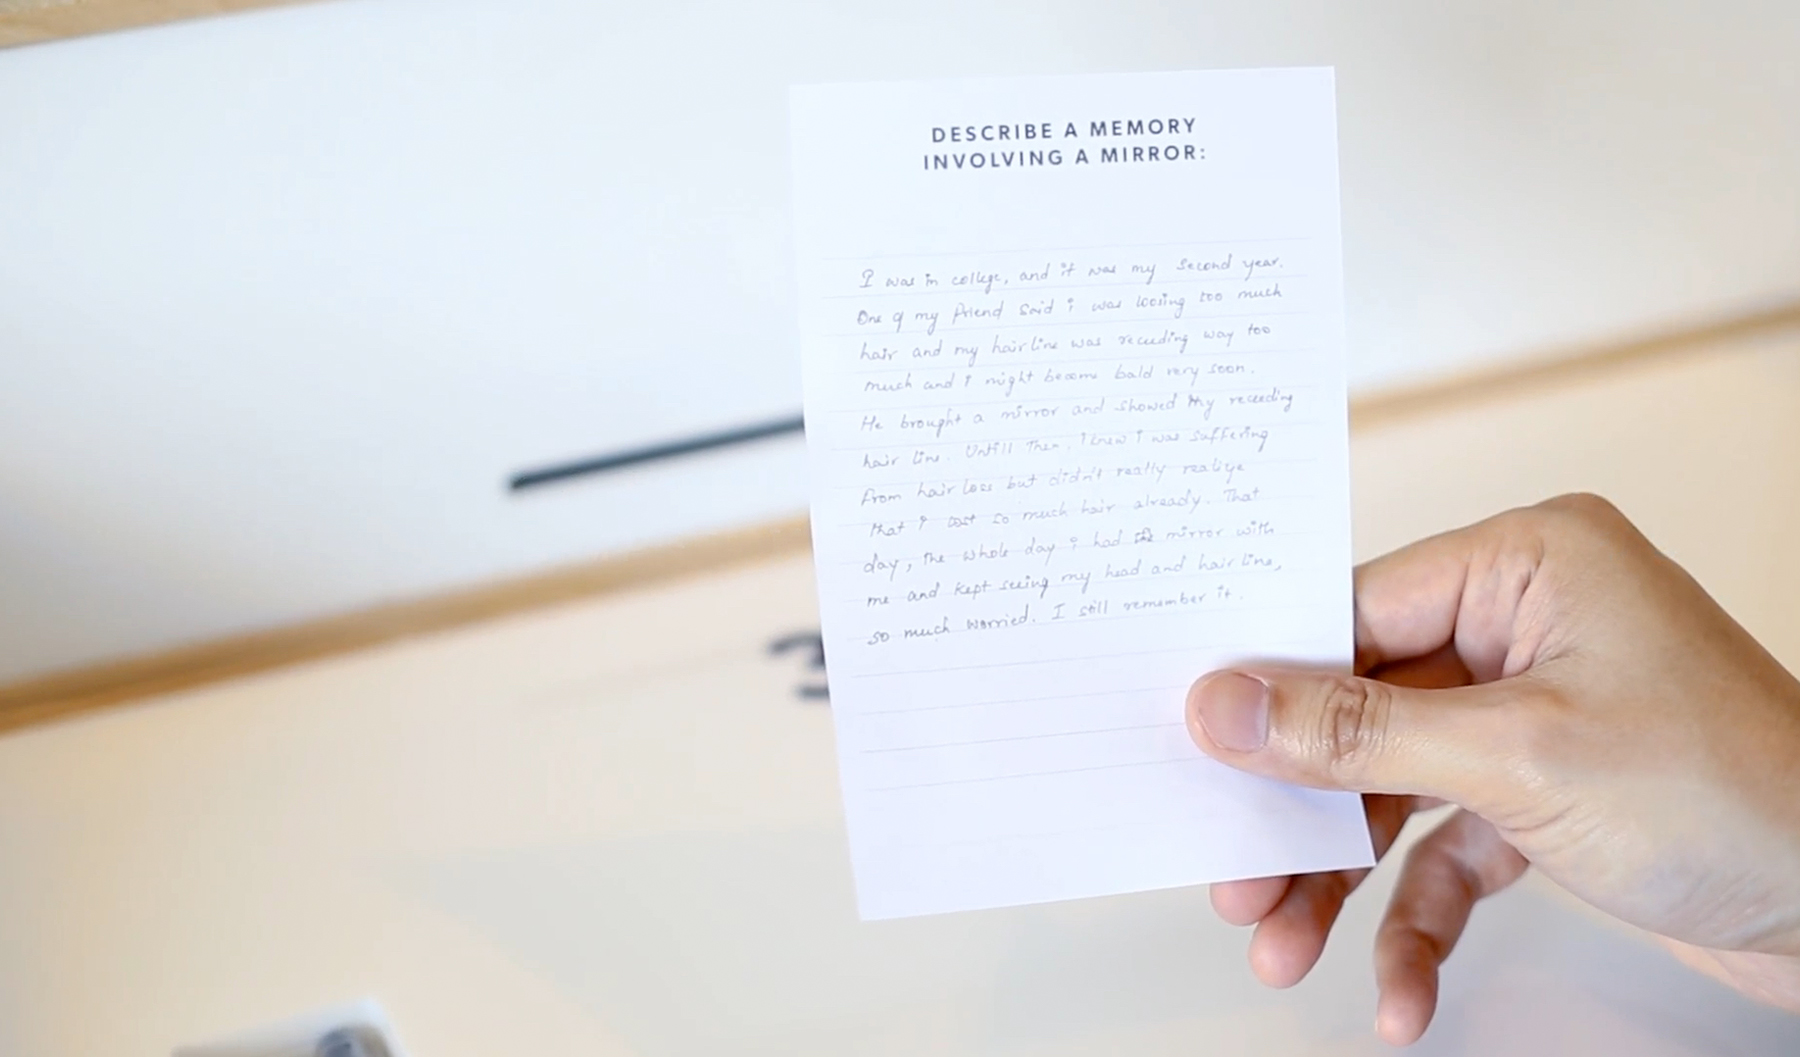 DESCRIBE A MEMORY
INVOLVING A MIRROR:
I was in college, and it was my second year.
One of my friend said i was loosing too much
hair and my hairline was receeding way too
much and i might become bald very soon.
He brought a mirror and showed my receeding
hair line. Untill then, I knew I was suffering
from hair loss but didn't really realize
that i lost so much hair already. That
day, the whole day i had the mirror with
me and kept seeing my head and hair line,
so much worried. I still remember it.
3